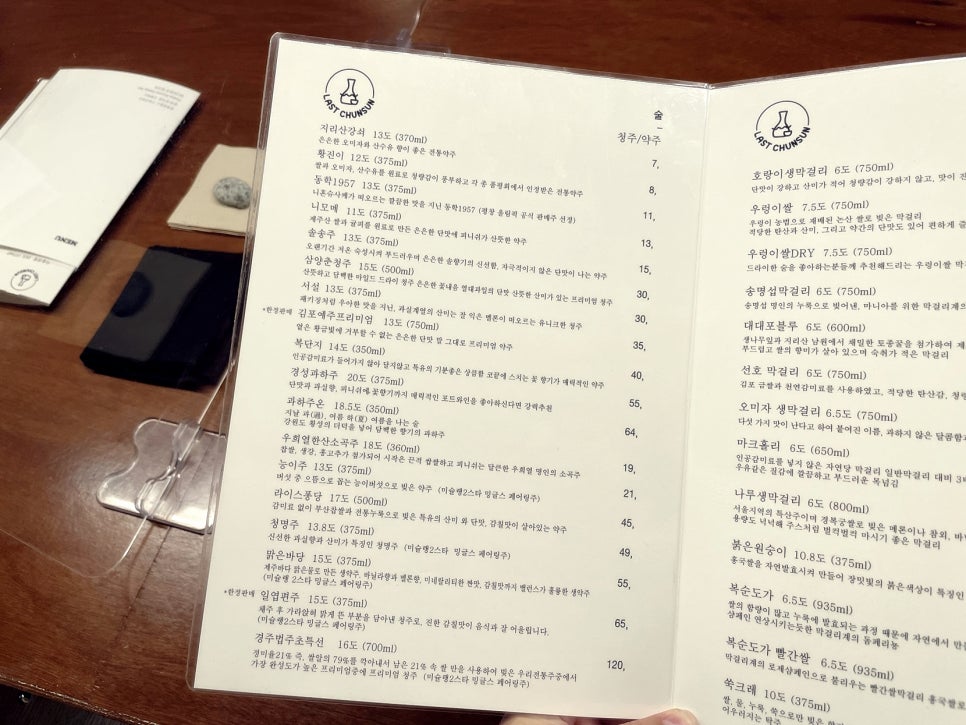 LAST CHUNSUN
술
청주/약주
지리산강쇠 13도 (370ml)
은은한 오미자와 산수유 향이 좋은 전통약주
7,
황진이 12도 (375ml)
쌀과 오미자, 산수유를 원료로 청량감이 풍부하고 각 종 품평회에서 인정받은 전통약주
8,
동학1957 13도 (375ml)
니혼슈사케가 떠오르는 깔끔한 맛을 지닌 동학1957 (평창 올림픽 공식 판매주 선정)
11,
니모메 11도 (375ml)
제주산 쌀과 귤피를 원료로 만든 은은한 단맛에 피니쉬가 산뜻한 약주
13,
솔송주 13도 (375ml)
오랜기간 저온 숙성시켜 부드러우며 은은한 솔향기의 신선함, 자극적이지 않은 단맛이 나는 약주
15,
삼양춘청주 15도 (500ml)
산뜻하고 담백한 마일드 드라이 청주 은은한 꽃내음 열대과일의 단맛 산뜻한 산미가 있는 프리미엄 청주
30,
서설 13도 (375ml)
패키징처럼 우아한 맛을 지닌, 과실계열의 산미는 잘 익은 멜론이 떠오르는 유니크한 청주
30,
*한정판매 김포예주프리미엄 13도 (750ml)
옅은 황금빛에 거부할 수 없는 은은한 단맛 말 그대로 프리미엄 약주
35,
복단지 14도 (350ml)
인공감미료가 들어가지 않아 달지않고 특유의 기분좋은 상큼함 코끝에 스치는 꽃 향기가 매력적인 약주
40,
경성과하주 20도 (375ml)
단맛과 과실향, 피니쉬에 꽃향기까지 매력적인 포트와인을 좋아하신다면 강력추천
55,
과하주온 18.5도 (350ml)
지날 과(過), 여름 하(夏) 여름을 나는 술
강원도 횡성의 더덕을 넣어 담백한 향기의 과하주
64,
우희열한산소곡주 18도 (360ml)
찹쌀, 생강, 홍고추가 첨가되어 시작은 끈적 쌉쌀하고 피니쉬는 달큰한 우희열 명인의 소곡주
19,
능이주 13도 (375ml)
버섯 중 으뜸으로 꼽는 능이버섯으로 빚은 약주 (미슐랭2스타 밍글스 페어링주)
21,
라이스퐁당 17도 (500ml)
감미료 없이 부산찹쌀과 전통누룩으로 빚은 특유의 산미 와 단맛, 감칠맛이 살아있는 약주
45,
청명주 13.8도 (375ml)
신선한 과실향과 산미가 특징인 청명주 (미슐랭2스타 밍글스 페어링주)
49,
맑은바당 15도 (375ml)
제주바다 맑은물로 만든 생약주, 바닐라향과 멜론향, 미네랄리티한 짠맛, 감칠맛까지 밸런스가 훌륭한 생약주
(미슐랭2스타 밍글스 페어링주)
55,
*한정판매 일엽편주 15도 (375ml)
채주 후 가라앉혀 맑게 뜬 부분을 담아낸 청주로, 진한 감칠맛이 음식과 잘 어울립니다.
(미슐랭2스타 밍글스 페어링주)
65,
경주법주초특선 16도 (700ml)
정미율21% 즉, 쌀알의 79%를 깎아내서 남은 21% 속 쌀 만을 사용하여 빚은 우리전통주중에서
가장 완성도가 높은 프리미엄중에 프리미엄 청주 (미슐랭2스타 밍글스 페어링주)
120,
LAST CHUNSUN
호랑이생막걸리 6도 (750ml)
단맛이 강하고 산미가 적어 청량감이 강하지 않고, 맛이 진
우렁이쌀 7.5도 (750ml)
우렁이 농법으로 재배된 논산 쌀로 빚은 막걸리
적당한 탄산과 산미, 그리고 약간의 단맛도 있어 편하게 즐
우렁이쌀DRY 7.5도 (750ml)
드라이한 술을 좋아하는분들께 추천해드리는 우렁이쌀 막
송명섭막걸리 6도 (750ml)
송명섭 명인의 누룩으로 빚어낸, 마니아를 위한 막걸리계의
대대포블루 6도 (600ml)
생나무잎과 지리산 남원에서 채밀한 토종꿀을 첨가하여 제
부드럽고 쌀의 향미가 살아 있으며 숙취가 적은 막걸리
선호 막걸리 6도 (750ml)
김포 금쌀과 천연감미료를 사용하였고, 적당한 탄산감, 청
오미자 생막걸리 6.5도 (750ml)
다섯 가지 맛이 난다고 하여 붙여진 이름, 과하지 않은 달콤함과
마크홀리 6도 (650ml)
인공감미료를 넣지 않은 자연당 막걸리 일반막걸리 대비 3배
우유같은 질감에 깔끔하고 부드러운 목넘김
나루생막걸리 6도 (800ml)
서울지역의 특산주이며 경복궁쌀로 빚은 메론이나 참외, 바
용량도 넉넉해 주스처럼 벌컥벌컥 마시기 좋은 막걸리
붉은원숭이 10.8도 (375ml)
홍국쌀을 자연발효시켜 만들어 장밋빛의 붉은색상이 특징인
복순도가 6.5도 (935ml)
쌀의 함량이 많고 누룩에 발효되는 과정 때문에 자연에서 만들
샴페인 연상시키는듯한 막걸리계의 돔페리뇽
복순도가 빨간쌀 6.5도 (935ml)
막걸리계의 로제샴페인으로 불리우는 빨간쌀막걸리 홍국쌀로
쑥크레 10도 (375ml)
쌀, 물, 누룩, 쑥으로만 빚은 쑥향이
어우러지는 탁주
MENU